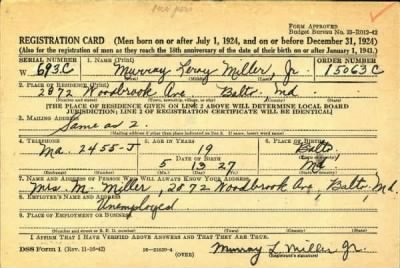 FORM APPROVED
Budget Bureau No. 33-R012-42
REGISTRATION CARD (Men born on or after July 1, 1924, and on or before December 31, 1924)
(Also for the registration of men as they reach the 18th anniversary of the date of their birth on or after January 1, 1943.)
SERIAL NUMBER 1. NAME (Print) ORDER NUMBER
W 693C Murray Leroy Miller, Jr. 15063C
2. PLACE OF RESIDENCE (Print)
2872 Woodbrook Ave Balto. Md.
(Number and street) (Town, township, village, or city) (County) (State)
[THE PLACE OF RESIDENCE GIVEN ON LINE 2 ABOVE WILL DETERMINE LOCAL BOARD
JURISDICTION; LINE 2 OF REGISTRATION CERTIFICATE WILL BE IDENTICAL]
3. MAILING ADDRESS
Same as 2.
[Mailing address if other than place indicated on line 2. If same, insert word same]
4. TELEPHONE 5. AGE IN YEARS 6. PLACE OF BIRTH
Ma. 2455-J 19 Balto.
DATE OF BIRTH
5 13 27 Md
7. NAME AND ADDRESS OF PERSON WHO WILL ALWAYS KNOW YOUR ADDRESS
Mrs. M. Miller, 2872 Woodbrook Ave, Balto, Md.
8. EMPLOYER'S NAME AND ADDRESS
Unemployed
9. PLACE OF EMPLOYMENT OR BUSINESS
I AFFIRM THAT I HAVE VERIFIED ABOVE ANSWERS AND THAT THEY ARE TRUE.
DSS Form 1 (Rev. 11-16-42) (OVER) Murray L Miller Jr.
(Registrant's signature)